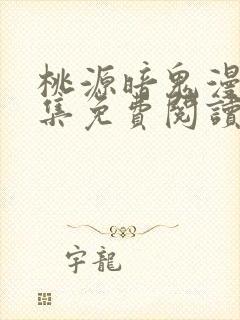 桃源暗鬼漫
集免費閱讀
宇龍